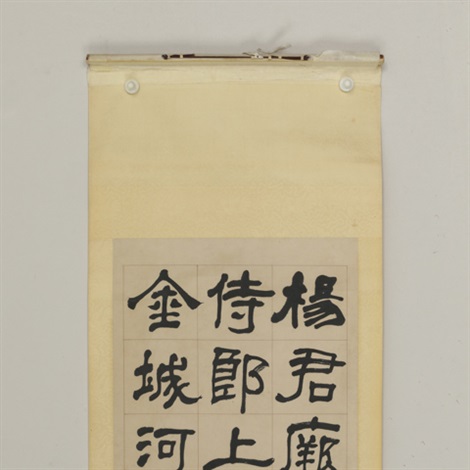 楊君厥
侍郎上
金城河